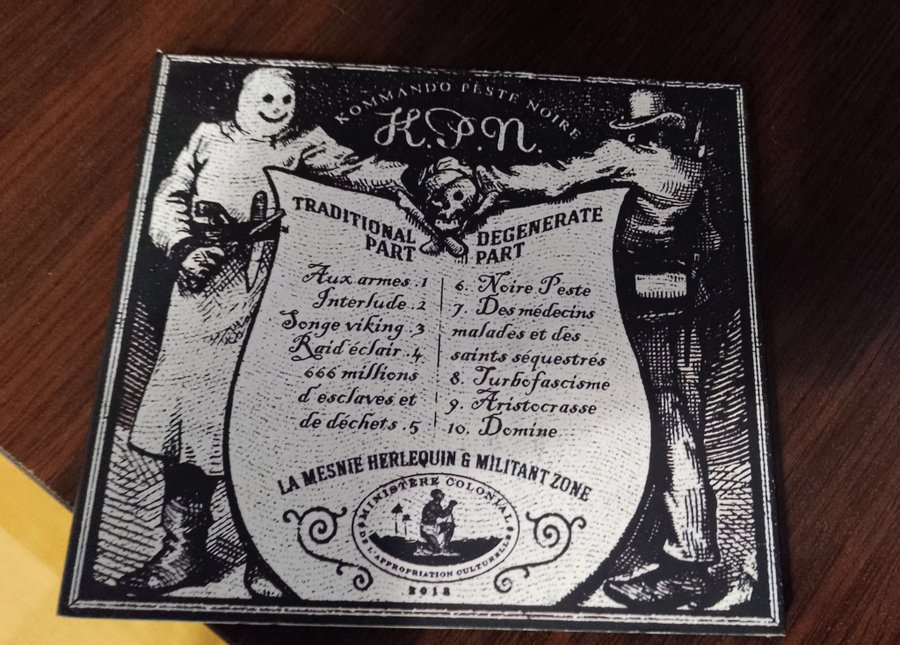 KOMMANDO PESTE NOIRE
K.P.N.
TRADITIONAL
PART
Aux armes . 1
Interlude . 2
Songe viking . 3
Raid éclair . 4
666 millions
d'esclaves et
de déchets . 5
DEGENERATE
PART
6. Noire Peste
7. Des médecins
malades et des
saints séquestrés
8. Turbofascisme
9. Aristocrasse
10. Domine
LA MESNIE HERLEQUIN & MILITANT ZONE
MINISTÈRE COLONIAL
DE L'APPROPRIATION CULTURELLE
2018